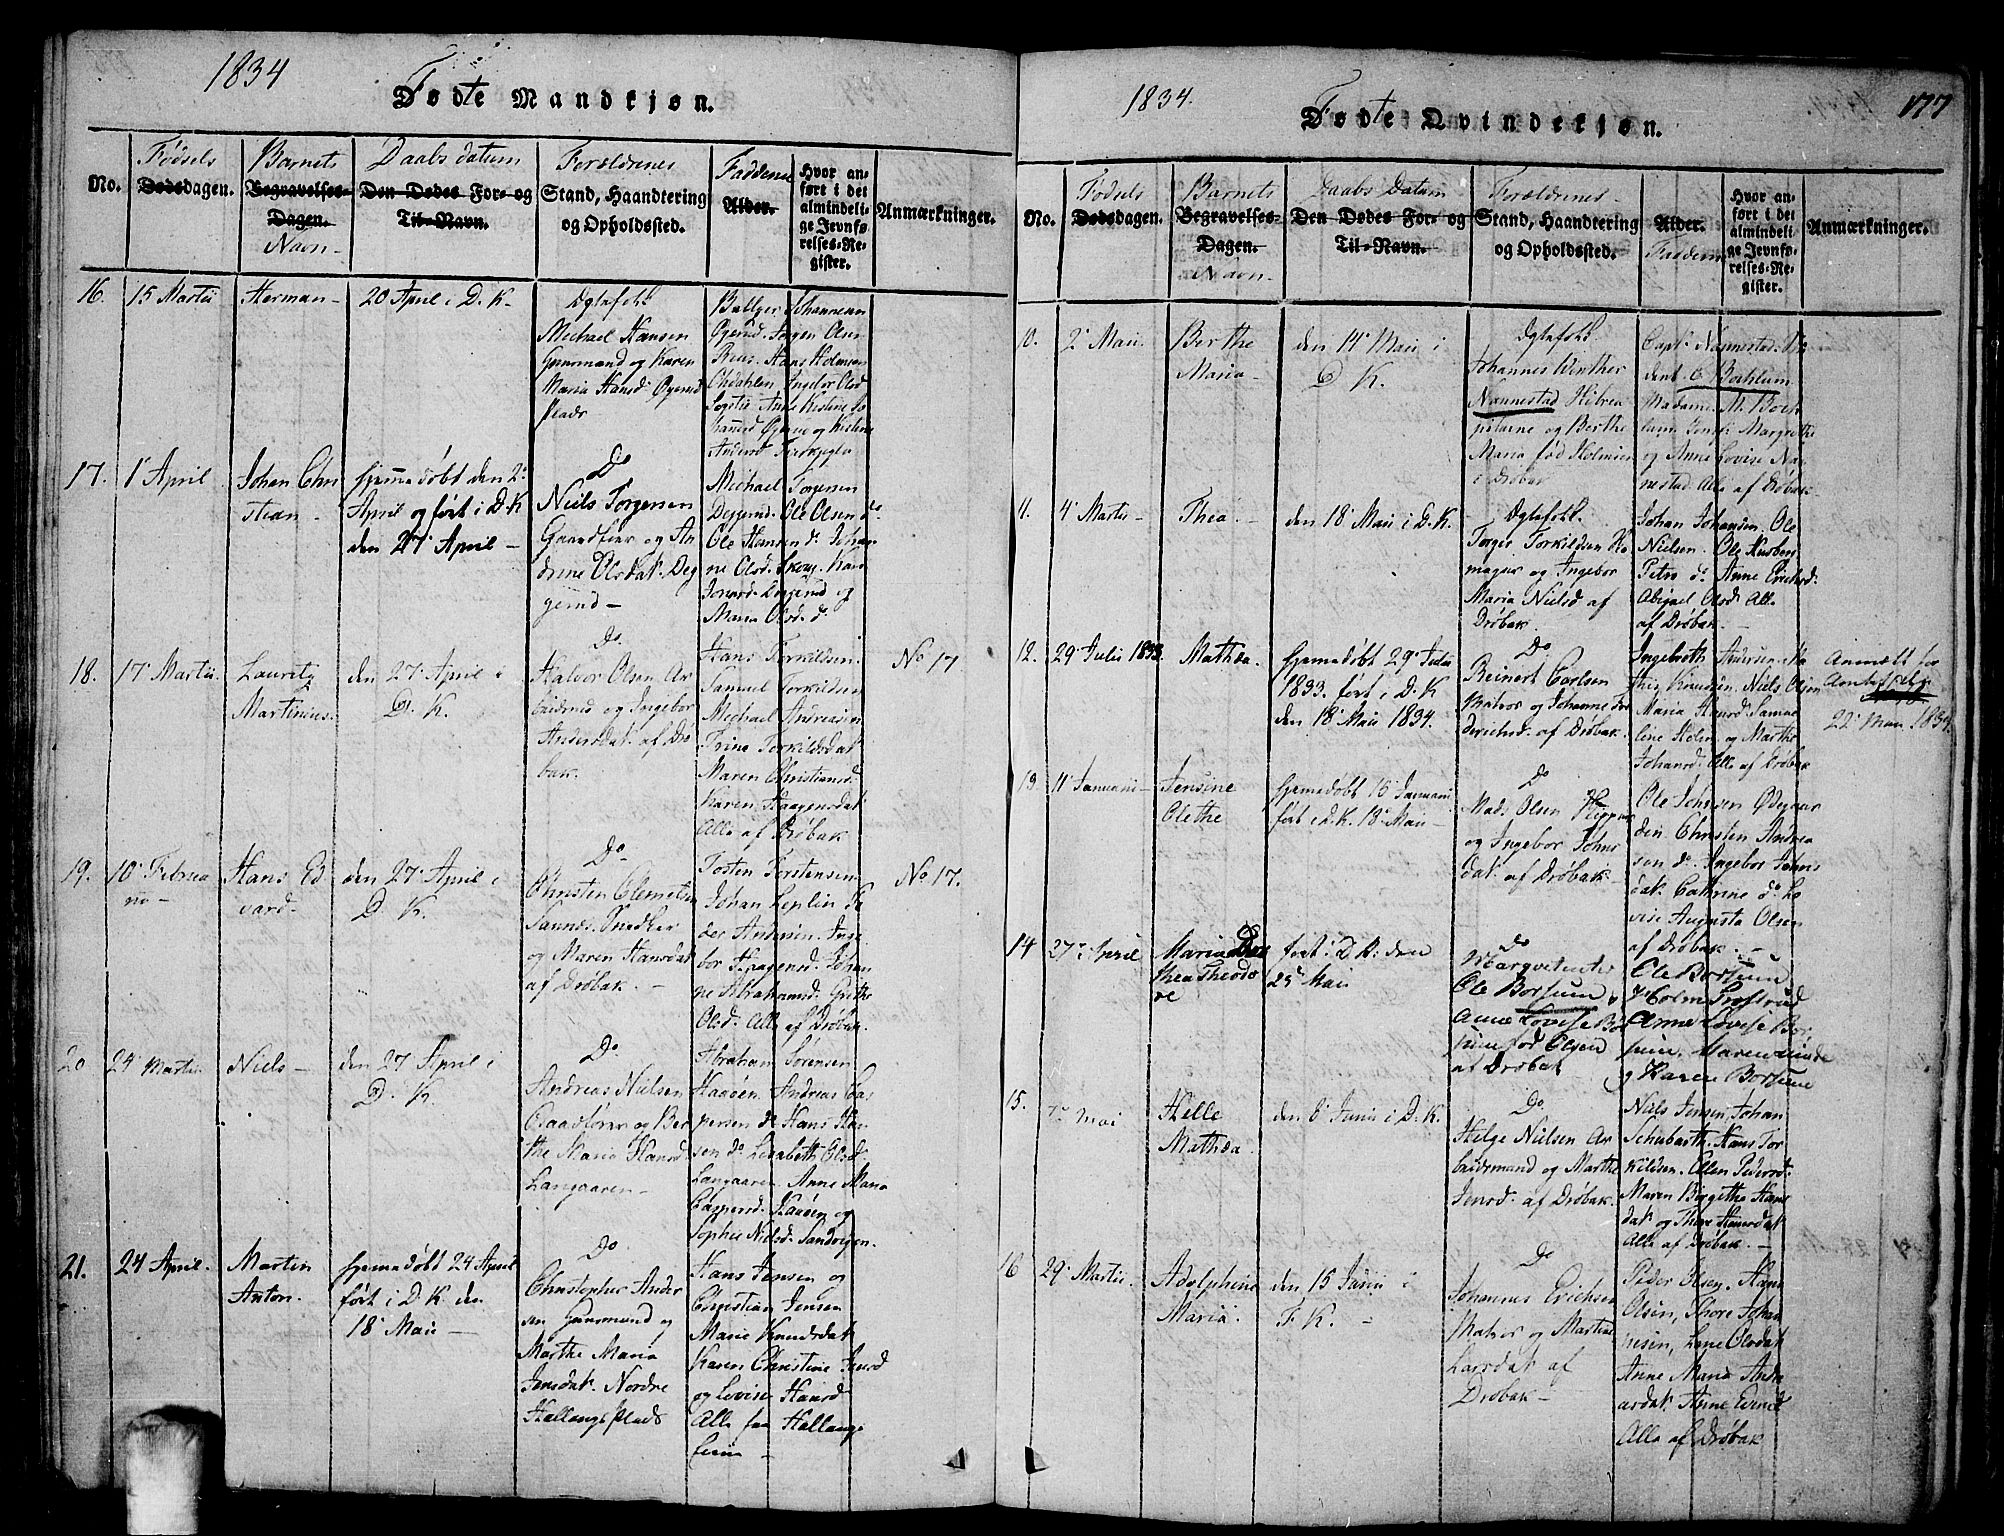 1834
Fødte Mandkjøn.
No.
Fødsels
Dødsdagen.
Barnets
Begravelses-
Dagen.
Navn-
Daabs datum
Den Dødes For- og
Til-Navn.
Forældrenes
Stand, Haandtering
og Opholdssted.
Faddene
Alder.
Hvor an-
ført i det
almindeli-
ge Jevnfø-
relses-Re-
gister.
Anmærkninger.
16.
15 Martii
Herman-
20 April i D. K-
Ægtefolk
Michael Hansen
og Karen
Maria Hansd.
Plads
Johannesen
Jørgen Olsen
Hans
Ingebor Olsd
Anne Kistine
og Kistine
Andersd
17.
1 April
Johan Chri
stian-
hjemedøbt den 2.
April og ført i D. K
den 27 April-
Do
Niels Torgersen
og An
drine Olsdat. Deg
gerud-
Michael Torgersen
Deggerud. Ole Olsen do.
Ole Hansen do. Johan
ne Olsd. Skoug. Kari
Deggerud og
Maria Olsd. do
18.
17 Martii.
Lauritz
Martinius.
den 27 April i
D. K.
Do.
Halvor Olsen Ar
beidsmd og Ingebor
Andersdat. af Drø
bak.
Hans Torkildsen.
Samuel Torkildsen
Michael Andreasen
Trine Torkildsdat
Maren Christiansd.
Karen Haagensdat.
Alle af Drøbak
No 17
19.
10 Februa
rii-
Hans Ed
vard-
den 27 April i
D. K.
Do
Christen Clemetsen
Snedker
og Maren Hansdat
af Drøbak. -
Tosten Torstensen
Johan Peplin Pe
der Andersen. Inge
bor Haagensd. Johan
ne Abrahamsd. Grethe
Olsd. Alle af Drøbak.
No 17.
20
24 Martii
Niels-
den 27 April i
D. K.
Do
Andreas Nielsen
og Ber
the Maria Hansd.
Langaaren-
Abraham Sørensen
Haaøen. Andreas Cas
persen do Hans Han
sen do. Lisabeth Olsd.
Langaaren. Anne Maria
Caspersd. Haaøen og
Sophie Nielsd. Sandvigen.
21.
24 April.
Martin
Anton.
hjemedøbt 24 April
ført i D. K. den
18 Maii-
Do
Christopher Ander
sen Huusmand og
Marthe Maria
Jensdat. Nordre
Hallangs Plads
Hans Jensen og
Christian Jensen
Marie Knudsdat
Karen Christine Jensd
og Lovise Hansd
Alle fra Hallangs
-
1834.
Fødte Qvindekjøn.
177
No.
Fødsels
Dødsdagen.
Barnets
Begravelses-
Dagen.
Navn-
Daabs Datum
Den Dødes For- og
Til-Navn.
Forældrenes-
Stand, Haandtering
og Opholdssted.
Alder.
Faddern
Hvor an-
ført i det
almindeli-
ge Jevnfø-
relses-Re-
gister.
Anmærkninger.
10.
2 Maii.
Berthe
Maria-
den 14 Maii i
D K.
Ægtefolk.
Johannes Winther
Nannestad
og Berthe
Maria fød
i Drøbak
Capt. Nannestad.
dent C Bochlum
Madame. M. Boch
lum Margrethe
og Anne Lovise Nan
nestad. Alle af Drøbak-
11.
4 Martii-
Thea. -
den 18 Maii i D. K.
Ægtefolk.
Torger Torkildsen
og Ingebor
Maria Nielsd af
Drøbak.
Johan Johansen, Ole
Nielsen. Ole Husberg
Petro do. Anne Erichsd.
Abigael Olsd. Alle
af Drøbak-
12.
29 Julii 1833.
Mathea.
hjemedøbt 29 Julii
1833. ført i D. K
den 18 Maii 1834.
Do
Reinert Carlsen
Matros og Johanne
af Drøbak.
Ingebreth Andersen.
Knudsen. Niels Olsen
Maria Hansd. Samue
line Holm og Marthe
Johansd. Alle af Drøbak
Anmældt for
22 Maii 1834.
13
11 Januarii-
Jensine
Olethe
hjemedøbt 15 Januarii
ført i D. K. 18 Maii-
Do
Mads Olsen
og Ingebor Johns
dat. af Drøbak-
Ole Johnsen Ødegaar
den Christen Andrea
sen do. Ingebor Johns
dat. Cathrine do Lo
vise Augusta Olsen
af Drøbak. -
14
27 April
Maria Doro
thea Theodo
re
ført i D. K: den
25 Maii
Do
Ole Borsum
Anne Lovise Bor
sum fød Olsen
af Drøbak
Ole Borsum
Holm
Anne Lovise Bor
sum.
og Karen Borsum
15.
Mai
Helle
Mathea.
den 8 Junii i D. K.
Do
Helge Nielsen Ar
beidsmand og Marthe
Jensd. af Drøbak.
Niels Jensen, Johan
Schubarth, Hans Tor
kildsen. Ellen Pedersd.
Maren Birgithe Hans
dat og Thore Hansdat.
Alle af Drøbak. -
16
29 Martii.
Adolphine
Maria.
den 15 Junii i
F. K. -
Do
Johannes Erichsen
Matros og Martine
Larsdat af
Drøbak-
Peder Olsen, Hans
Olsen, Thore Johan
nesen, Lene Olsdat
Anne Maria Andre
asdat. Anne
Alle af Drøbak